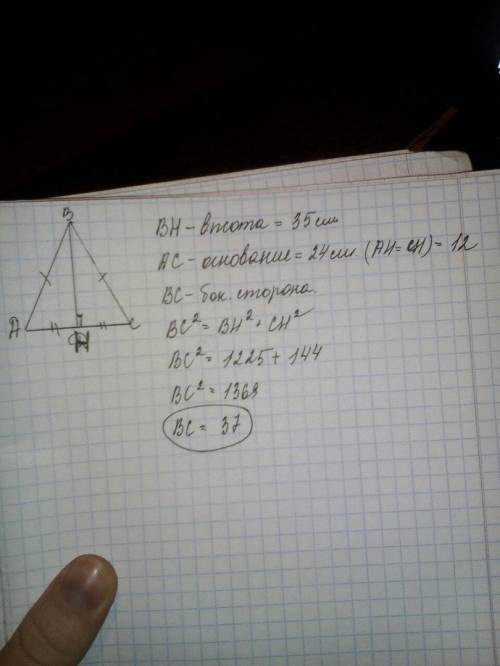 B
A
C
H
BH - высота = 35 см
AC - основание = 24 см. (AH = CH) = 12
BC - бок. сторона.
BC² = BH² + CH²
BC² = 1225 + 144
BC² = 1369
BC = 37